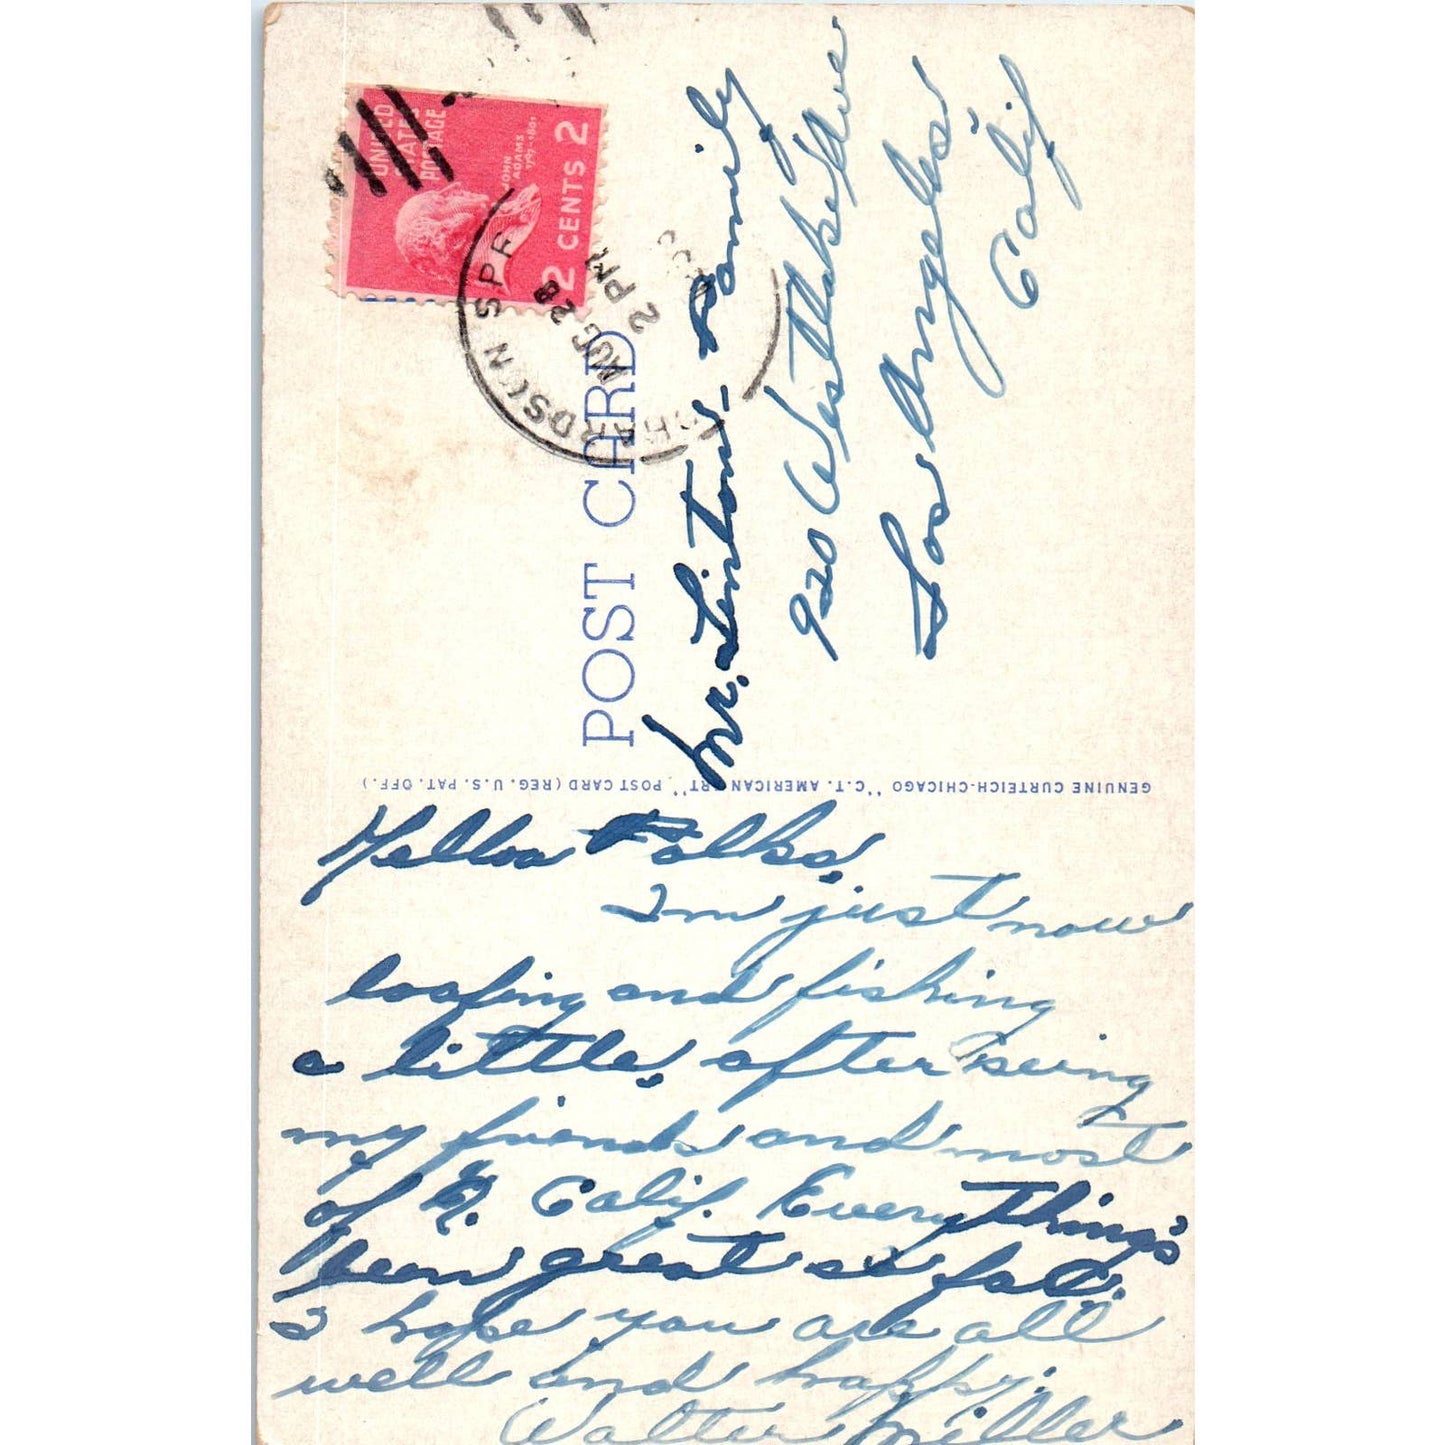 UNITED
STATES
POSTAGE
JOHN
ADAMS
1797-1801
2 CENTS 2
AUG 28
2 PM
POST CARD
Mr. Linton - Family
920 Westlake Ave
Los Angeles
Calif
GENUINE CURTEICH-CHICAGO "C.T. AMERICAN ART" POST CARD (REG. U.S. PAT. OFF.)
Helloa Folks,
Im just now
loafing and fishing
a little, after seeing
my friends and most
of N. Calif. Everything's
been great so far.
I hope you are all
well and happy.
Walter Miller